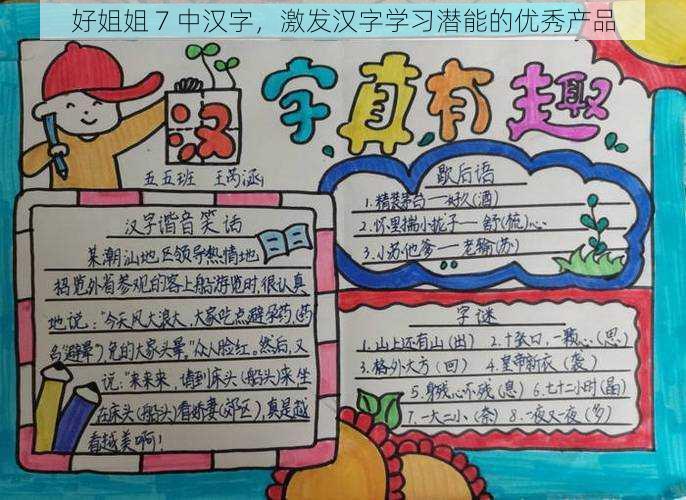 好姐姐 7 中汉字，激发汉字学习潜能的优秀产品
汉字真有趣
五五班 王芮涵
汉字谐音笑话
某潮汕地区领导热情地
招览外省参观的客上船游览时,很认真
地说："今天风大浪大,大家吃点避孕药(药
"避晕)免的大家头晕。"众人脸红。然后,又
说:"来来来,请到床头(船头)来,坐
在床头(船头)看娇妻(郊区),真是越
看越美啊!
歇后语
1.精装茅台——好久(酒)
2.怀里揣小拢子——舒(梳)心
3.小苏他爹——老输(苏)
字谜
1.山上还有山(出) 2.十张口,一颗心(思)
3.格外大方(回) 4.皇帝新衣(袭)
5.身残心不残(息) 6.七十二小时(晶)
7.一大二小(奈) 8.一夜又一夜(多)